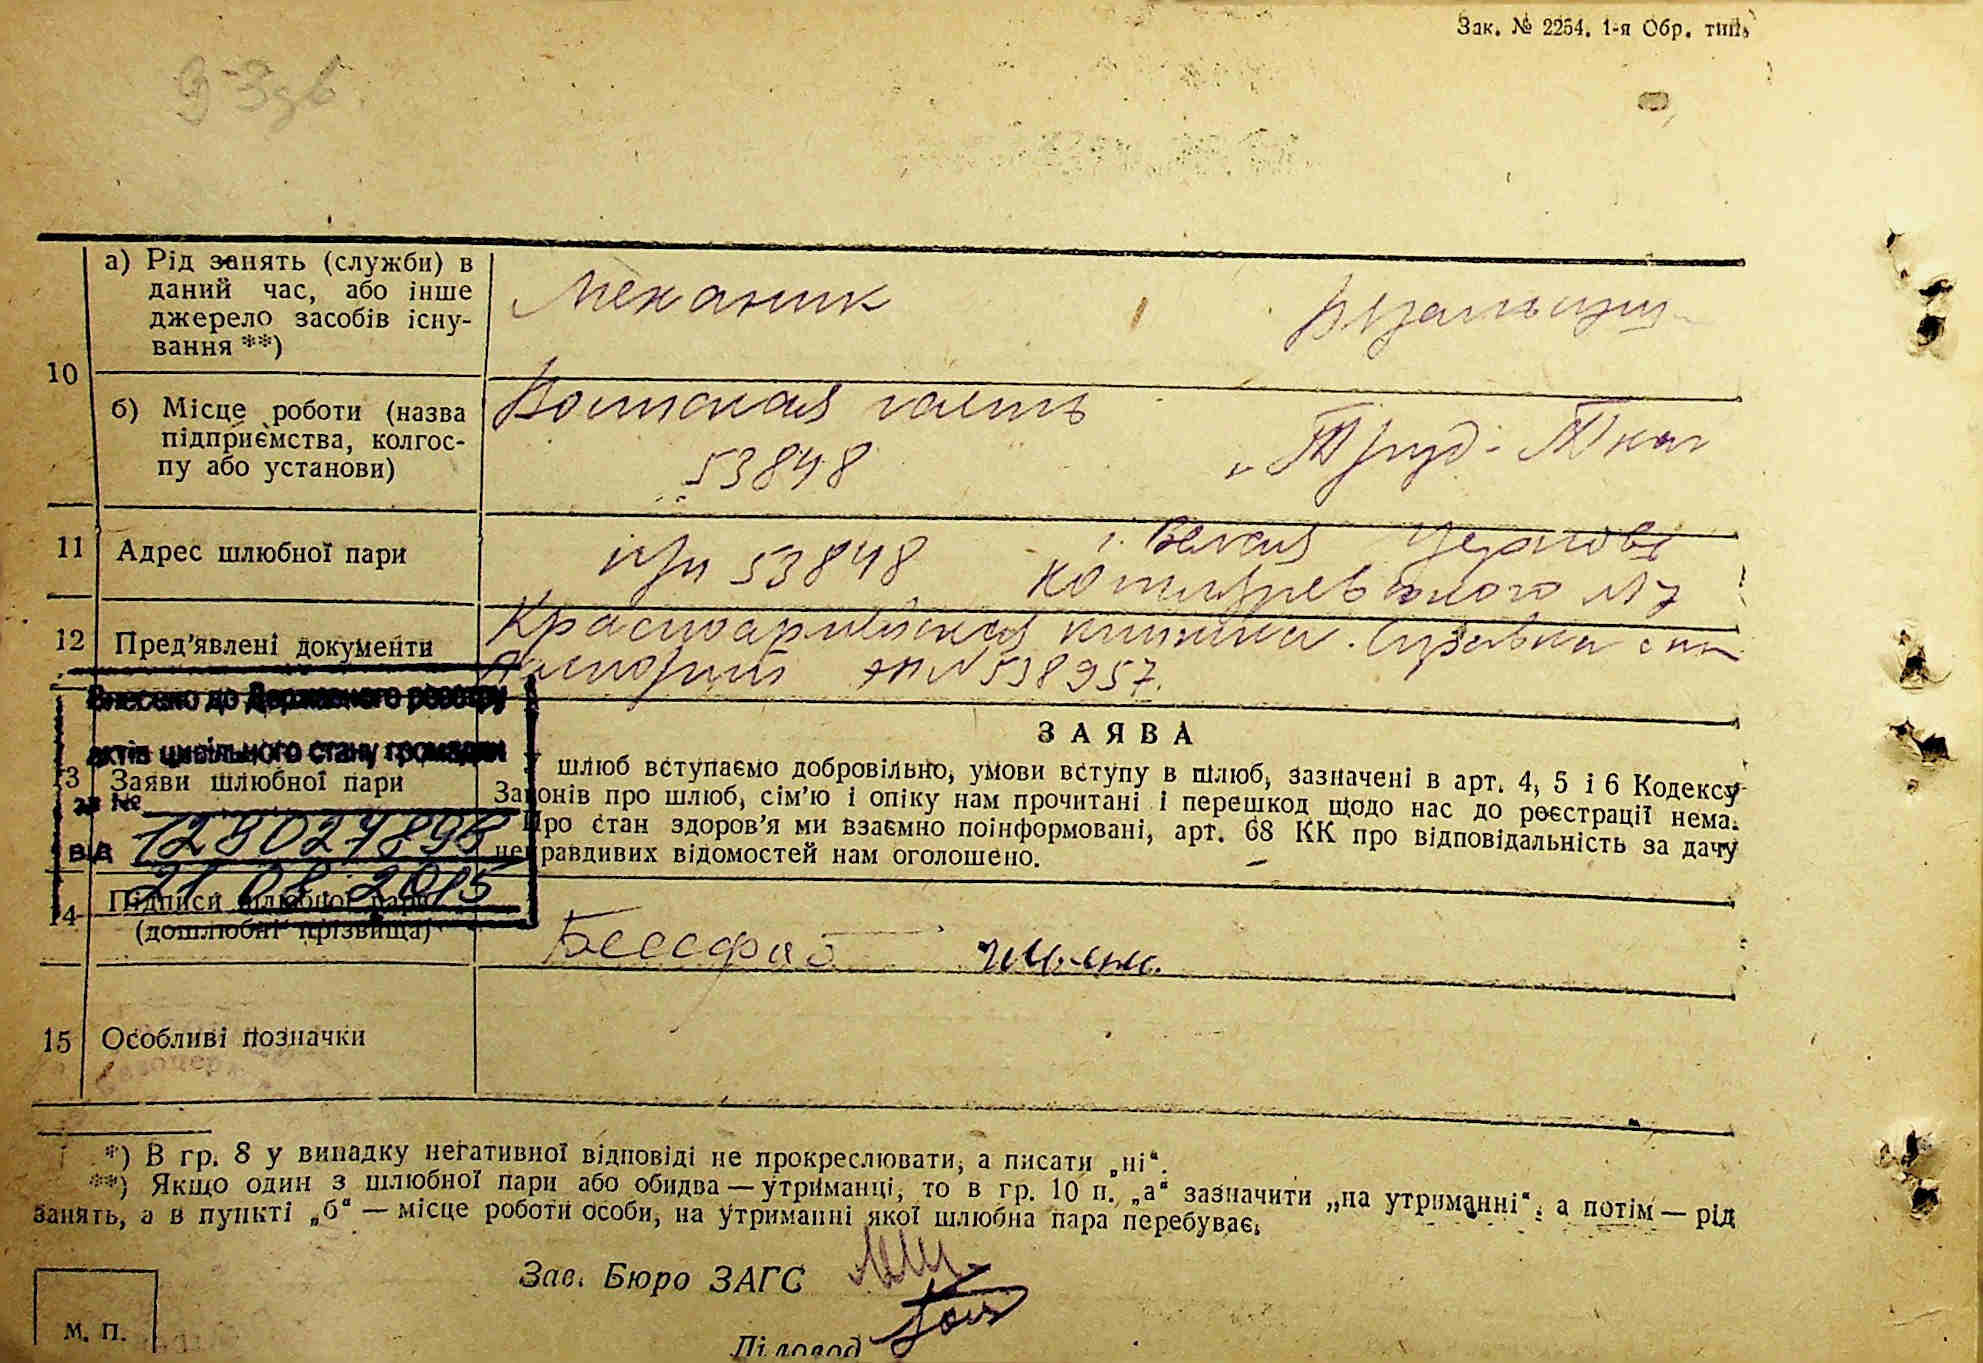 Зак. № 2254. 1-я Обр. тип.
10
а) Рід занять (служби) в
даний час, або інше
джерело засобів існу-
вання **)
Механик
б) Місце роботи (назва
підприємства, колгос-
пу або установи)
Воинская часть
53848
„Труд-
11
Адрес шлюбної пари
при 53848
г. Белая Церковь
Котляревского №7
12
Пред'явлені документи
Красноармейская книжка. Справка
№538957.
Внесено до Державного реєстру
актів цивільного стану громадян
за №
1290274898
від
21 08 2015
З А Я В А
3
Заяви шлюбної пари
шлюб вступаємо добровільно, умови вступу в шлюб, зазначені в арт. 4, 5 і 6 Кодексу
Законів про шлюб, сім'ю і опіку нам прочитані і перешкод щодо нас до реєстрації нема.
Про стан здоров'я ми взаємно поінформовані, арт. 68 КК про відповідальність за дачу
неправдивих відомостей нам оголошено.
14
Підписи шлюбної пари
(дошлюбні прізвища)
15
Особливі позначки
*) В гр. 8 у випадку негативної відповіді не прокреслювати, а писати „ні“.
**) Якщо один з шлюбної пари або обидва — утриманці, то в гр. 10 п. „а“ зазначити „на утриманні“, а потім — рід
занять, а в пункті „б“ — місце роботи особи, на утриманні якої шлюбна пара перебуває.
Зав. Бюро ЗАГС
М. П.
Діловод